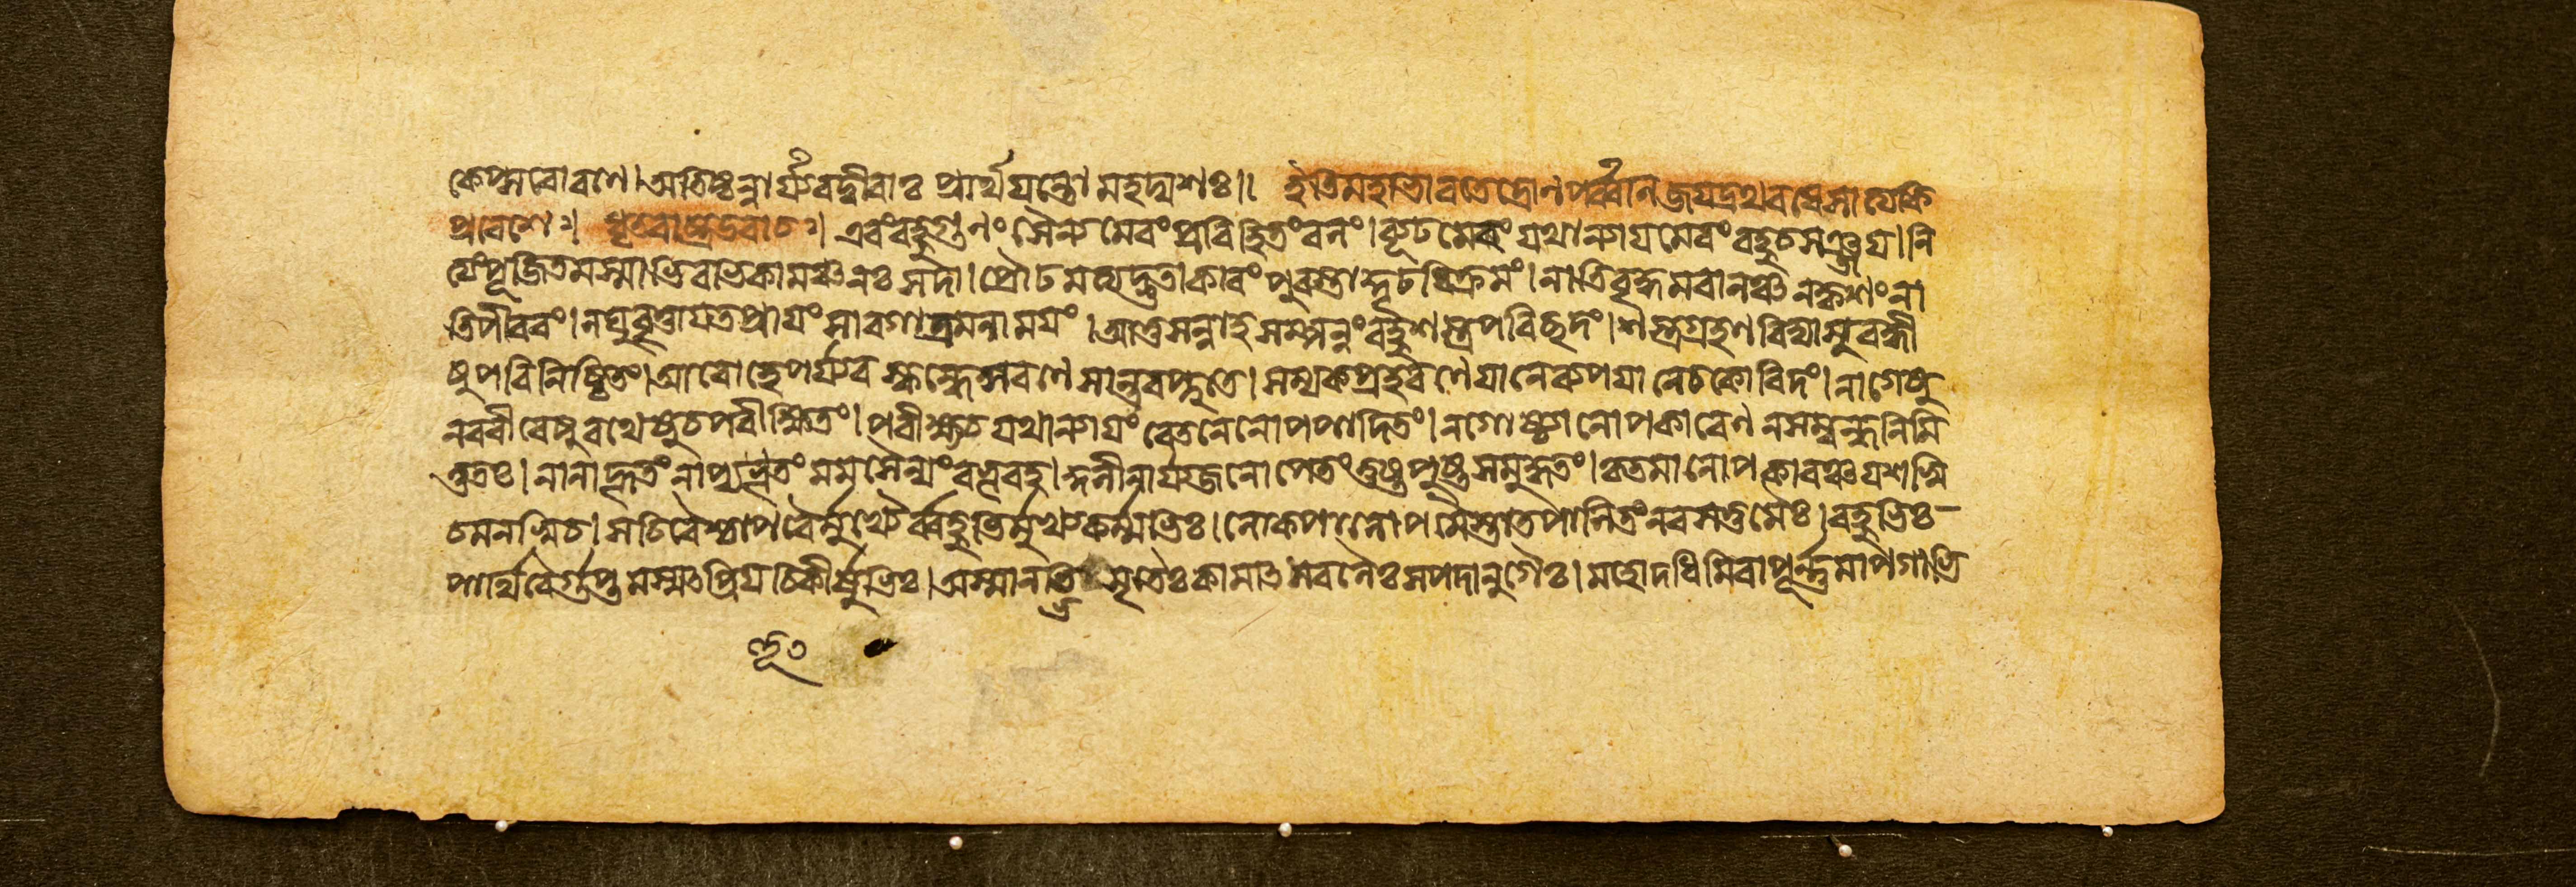 কেপ্সবো রণে। অতিষ্ঠন্নার্য্যবদ্বীরাঃ প্রার্থযন্তো মহদ্যশঃ॥ ইতি মহাভারতে দ্রোণপর্ব্বনি জযদ্রথবধে সাত্যকি
প্রবেশঃ। ধৃতরাষ্ট্র উবাচঃ। এবং বহুগুণং সৈন্যমেবং প্রবিহিতং বলং। ব্যূঢমেবং যথান্যাযমেবং বহু চ সঞ্জয। নি
ত্যং পূজিতমস্মাভিরভিকামঞ্চ নঃ সদা। প্রৌঢমত্যদ্ভুতাকারং পুরস্তাদ্দৃঢবিক্রমং। নাতিবৃদ্ধমবালঞ্চ ন কৃশং না
তিপীবরং। লঘুবৃত্তাযতপ্রাযং সারগাত্রমনামযং। আত্তসন্নাহসম্পন্নং বহুশস্ত্রপরিছদং। শস্ত্রগ্রহণবিদ্যাসু বহ্বী
ষু পরিনিষ্ঠিতং। আরোহে পর্য্যবস্কন্দে সরণে সান্তরপ্লুতে। সম্যক প্রহরণে যানে ব্যপযানে চ কোবিদং। নাগেষু
নরবীরেষু রথেষু চ পরীক্ষিতং। পরীক্ষ্য চ যথান্যাযং বেতনেনোপপাদিতং। ন গোষ্ঠ্যা নোপকারেণ ন সম্বন্ধনিমি
ত্ততঃ। নানাহূতং নাপ্যভৃতং মম সৈন্যং বভূব হ। কুলীনার্যজনোপেতং তুষ্টপুষ্টমনুদ্ধতং। কৃতমানোপকারঞ্চ যশস্বি
চ মনস্বি চ। সচিবৈশ্চাপরৈর্মুখ্যৈর্ব্বহুভির্মুখ্যকর্ম্মভিঃ। লোকপালোপমৈস্তাত পালিতং নরসত্তমৈঃ। বহুভিঃ-
পার্থিবৈর্গুপ্তমস্মৎপ্রিযচিকীর্ষুভিঃ। অস্মানভিসৃতৈঃ কামাৎ সবলৈঃ সপদানুগৈঃ। মহোদধিমিবাপূর্ণমাপগাভি